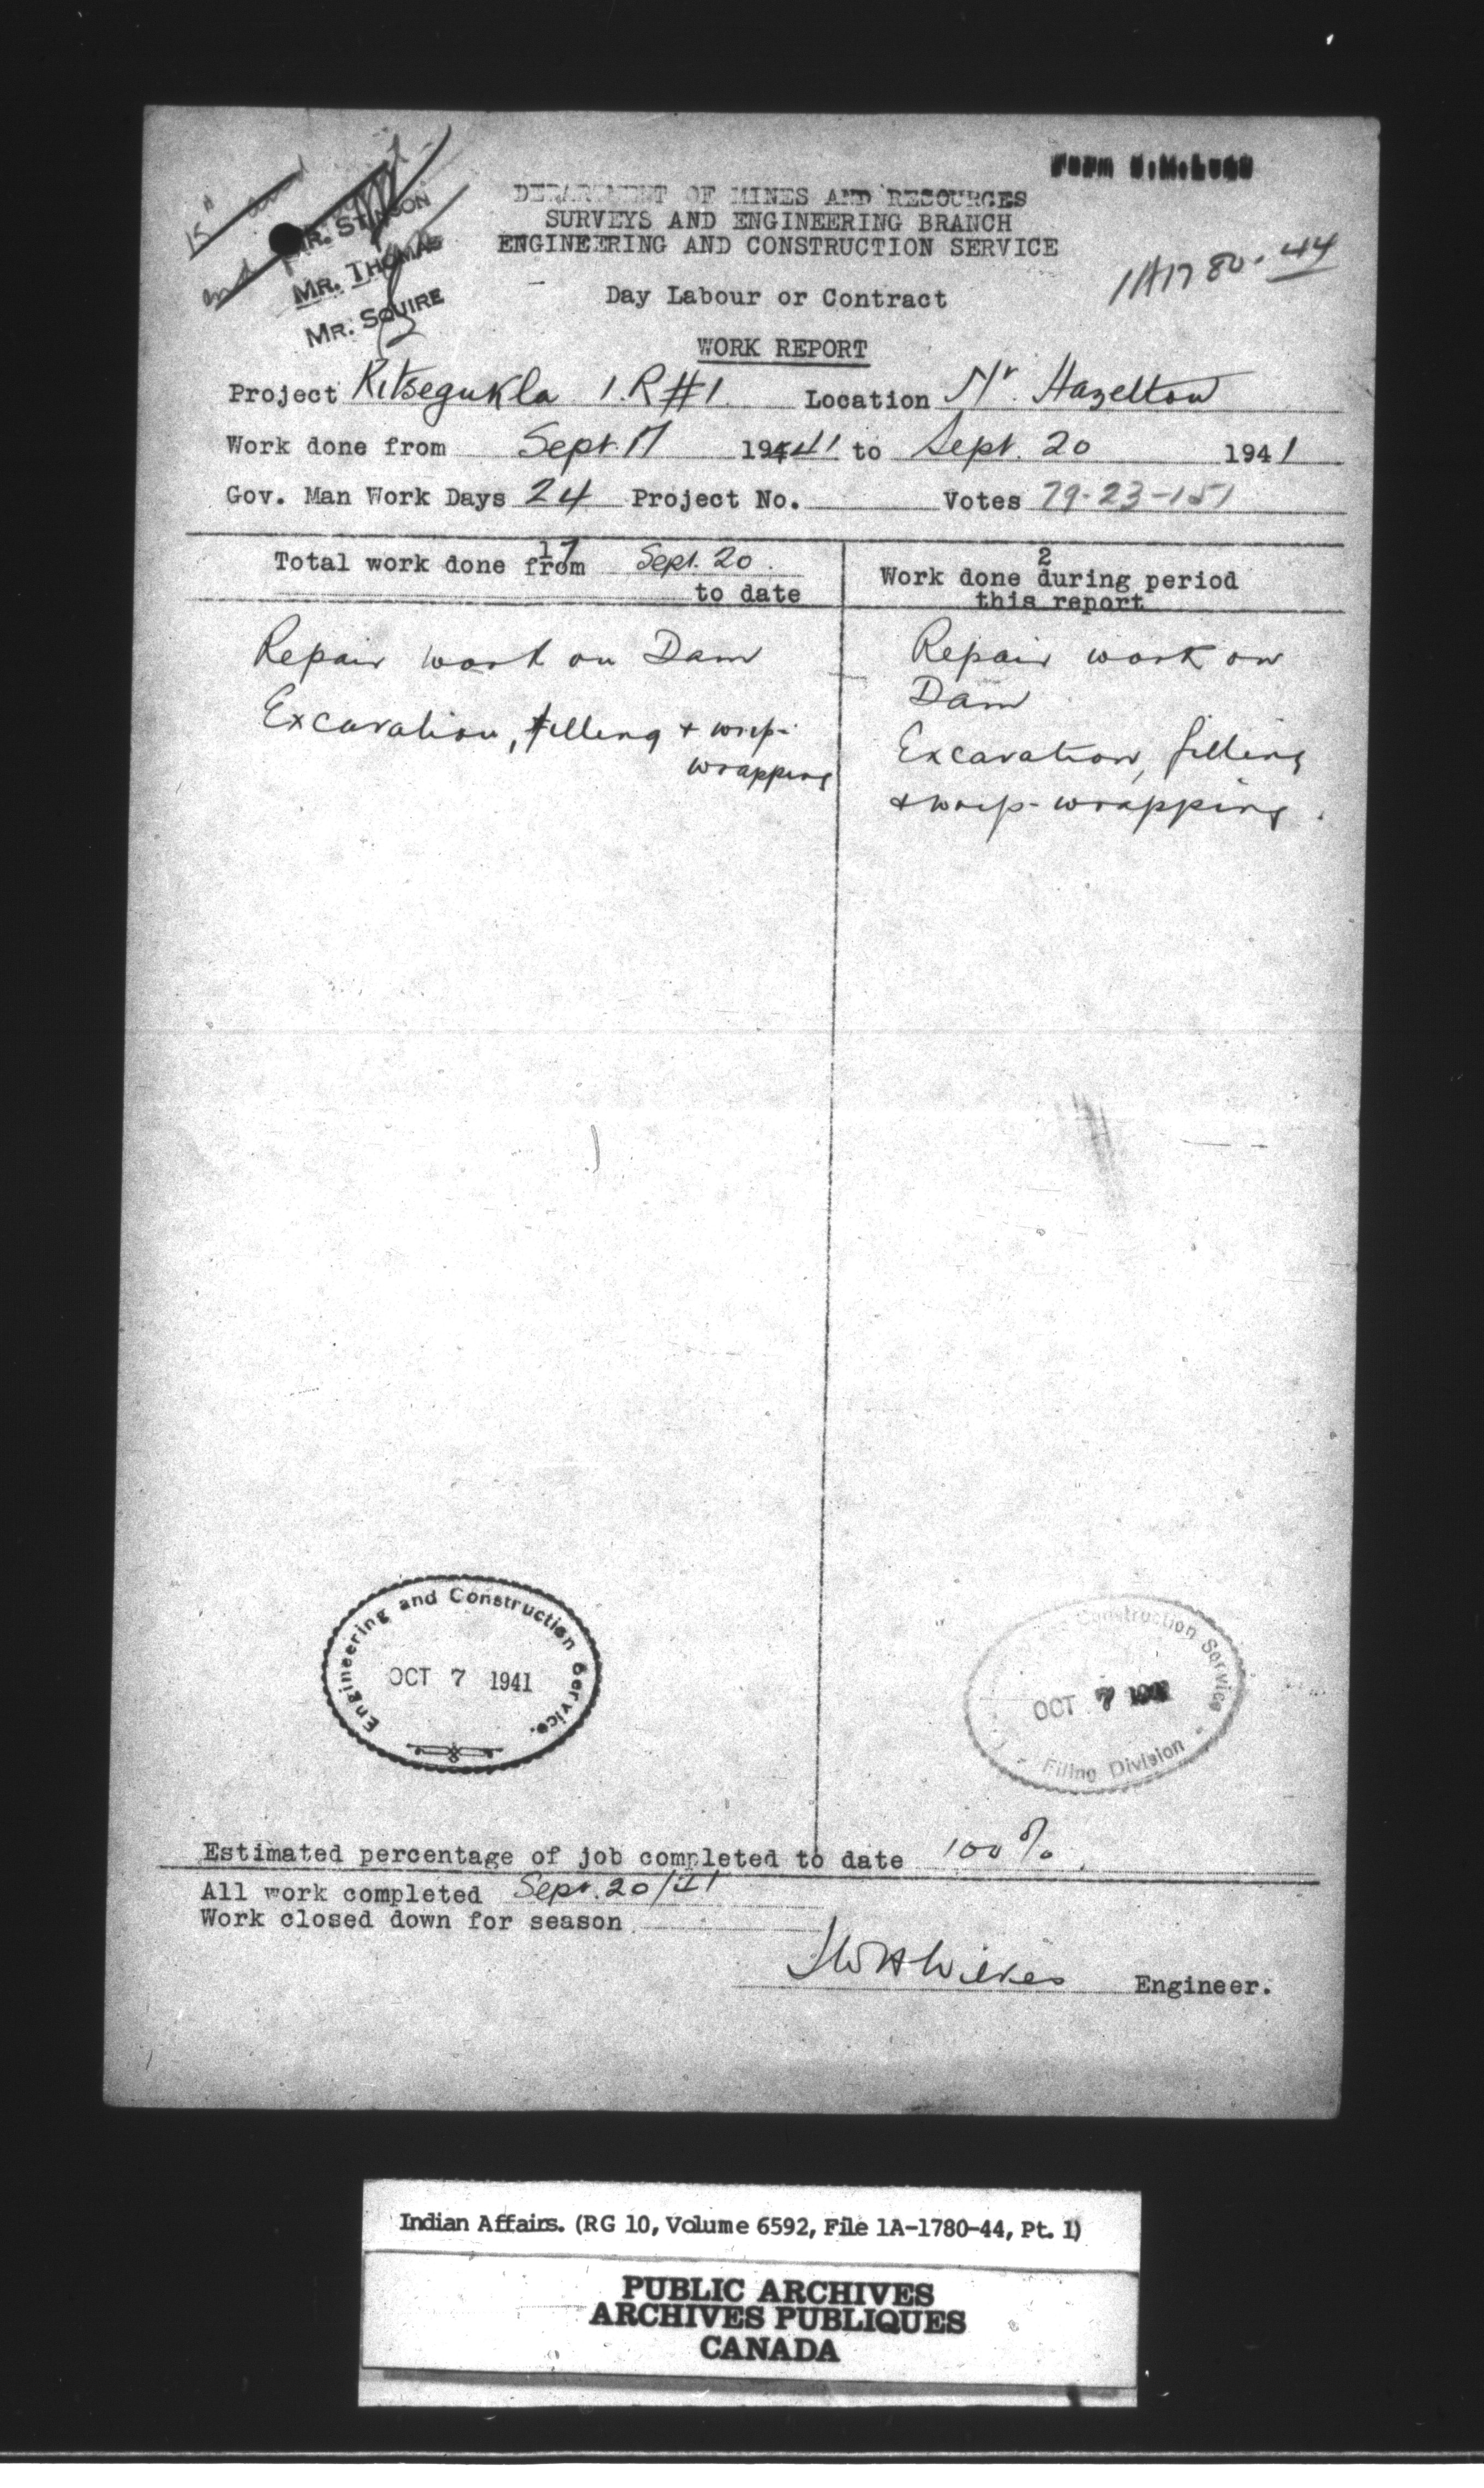 15"
MR. STINSON
MR. THOMAS
MR. SQUIRE
DEPARTMENT OF MINES AND RESOURCES
SURVEYS AND ENGINEERING BRANCH
ENGINEERING AND CONSTRUCTION SERVICE
1A1780-44
Day Labour or Contract
WORK REPORT
Project Kitsegukla I.R #1. Location Nr. Hazelton
Work done from Sept. 17 1941 to Sept. 20 1941
Gov. Man Work Days 24 Project No. Votes 79-23-151
Total work done from 17 Sept. 20.
to date
2
Work done during period
this report
Repair work on Dam
Excavation, filling + wrip-
wrapping
Repair work on
Dam
Excavation, filling
+ wrip-wrapping.
Engineering and Construction Service.
OCT 7 1941
Construction Service
OCT 7 1941
Filing Division
Estimated percentage of job completed to date 100%.
All work completed Sept. 20/41
Work closed down for season
Wilkes Engineer.
Indian Affairs. (RG 10, Volume 6592, File 1A-1780-44, Pt. 1)
PUBLIC ARCHIVES
ARCHIVES PUBLIQUES
CANADA